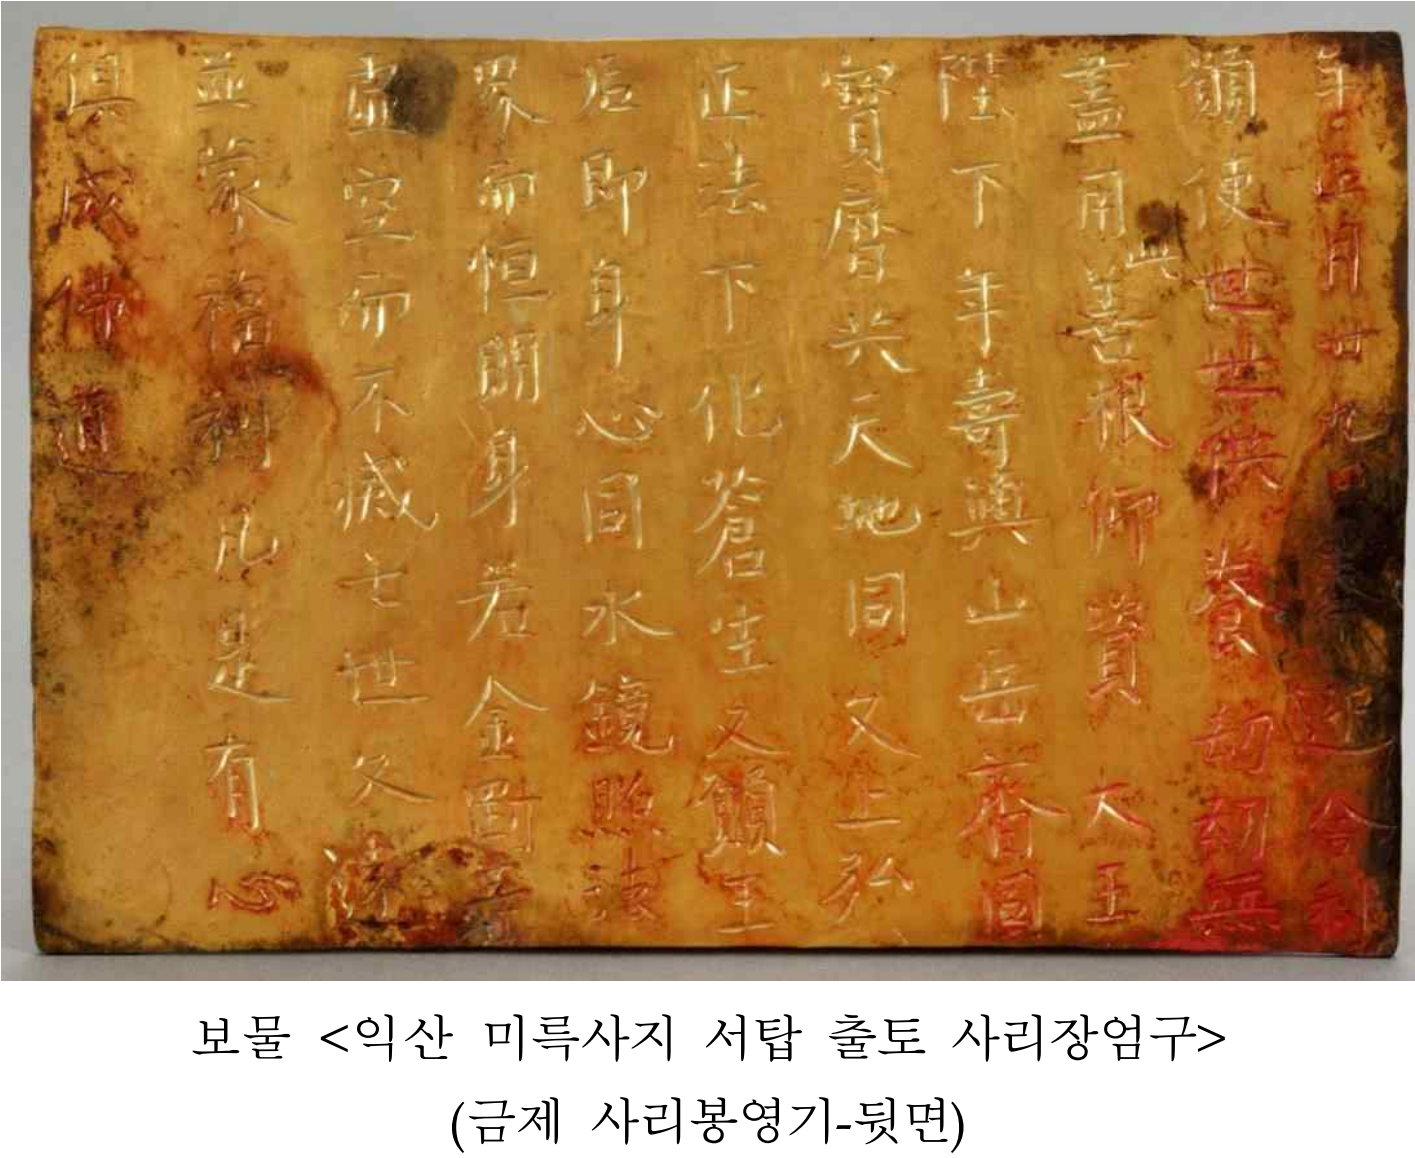 年正月卄九日奉迎舍利
願使世世供養劫劫無
盡用此善根仰資大王
陛下年壽與山岳齊固
寶曆共天地同久上弘
正法下化蒼生又願王
后即身心同水鏡照法
界而恒明身若金剛等
虛空而不滅七世久遠
並蒙福利凡是有心
俱成佛道
보물 <익산 미륵사지 서탑 출토 사리장엄구>
(금제 사리봉영기-뒷면)